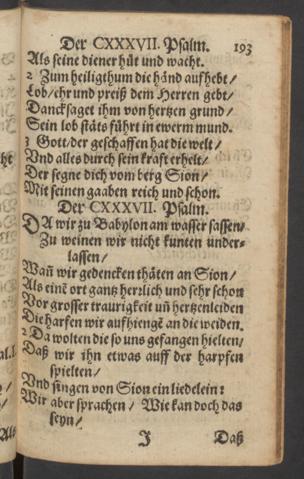 Der CXXXVII. Psalm. 193
Als seine diener hüt und wacht.
2 Zum heiligthum die händ aufhebt/
Lob/ehr und preiß dem Herren gebt/
Dancksaget ihm von hertzen grund/
Sein lob stäts führt in ewerm mund.
3 Gott/der geschaffen hat die welt/
Vnd alles durch sein kraft erhelt/
Der segne dich vom berg Sion/
Mit seinen gaaben reich und schon.
Der CXXXVII. Psalm.
DA wir zu Babylon am wasser sassen/
Zu weinen wir nicht kunten under-
lassen/
Wañ wir gedencken thäten an Sion/
Als einē ort gantz herzlich und sehr schon
Vor grosser traurigkeit uñ hertzenleiden
Die harfen wir aufhiengē an die weiden.
2 Da wolten die so uns gefangen hielten/
Daß wir ihn etwas auff der harpfen
spielten/
Vnd singen von Sion ein liedelein:
Wir aber sprachen/ Wie kan doch das
seyn/
J Daß